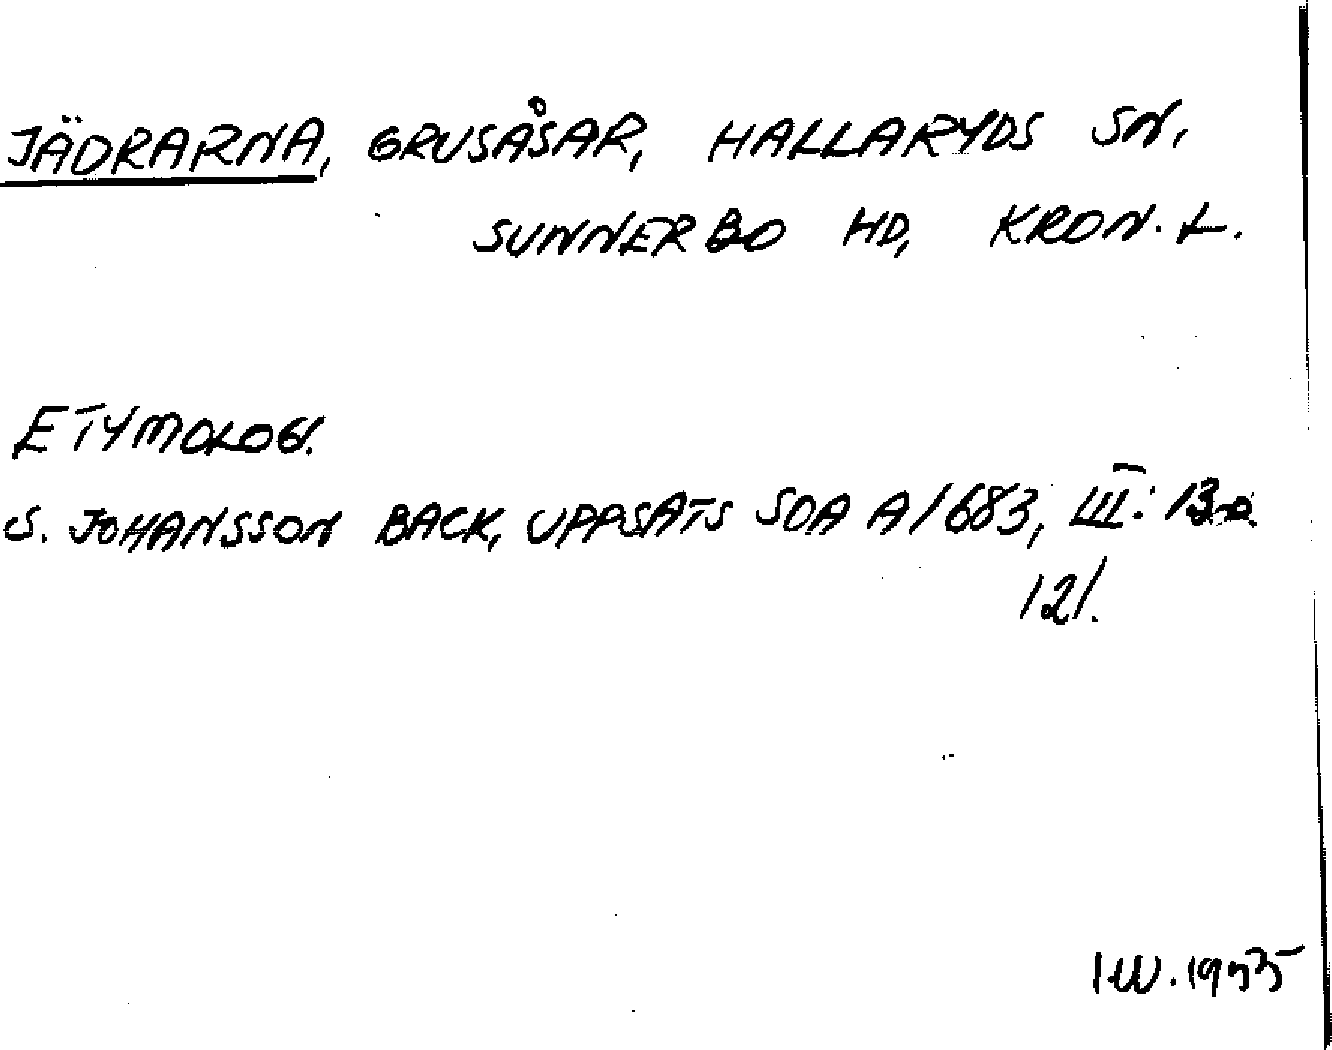 JÄDRARNA, GRUSÅSAR, HALLARYDS SN,
SUNNERBO HD, KRON. L.
ETYMOLOGI.
S. JOHANSSON BACK, UPPSATS SOA A/683, III:
121.
I.W. 1935